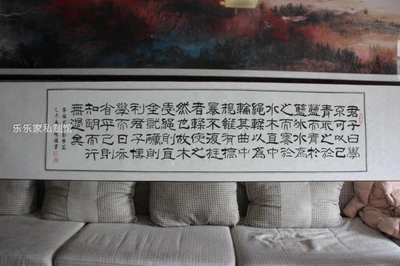 君子曰學
不可以已
青取之於
藍而青於
藍冰水為
之而寒於
水木直中
繩輮以為
輪其曲中
規雖有槁
暴不復挺
者輮使之
然也故木
受繩則直
金就礪則
利君子博
學而日參
省乎己則
知明而行
無過矣
乐乐家私